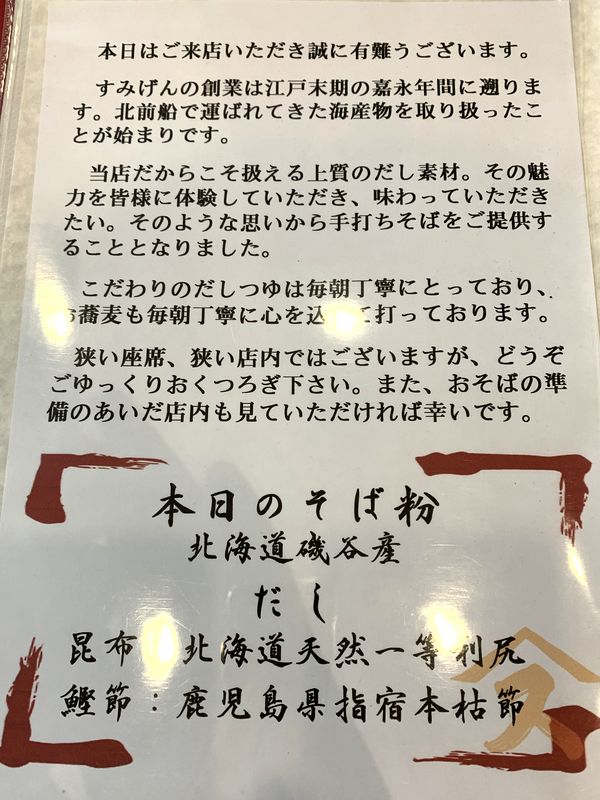 本日はご来店いただき誠に有難うございます。
すみげんの創業は江戸末期の嘉永年間に遡りま
す。北前船で運ばれてきた海産物を取り扱ったこ
とが始まりです。
当店だからこそ扱える上質のだし素材。その魅
力を皆様に体験していただき、味わっていただき
たい。そのような思いから手打ちそばをご提供す
ることとなりました。
こだわりのだしつゆは毎朝丁寧にとっており、
お蕎麦も毎朝丁寧に心を込めて打っております。
狭い座席、狭い店内ではございますが、どうぞ
ごゆっくりおくつろぎ下さい。また、おそばの準
備のあいだ店内も見ていただければ幸いです。
本日のそば粉
北海道磯谷産
だし
昆布：北海道天然一等利尻
鰹節：鹿児島県指宿本枯節